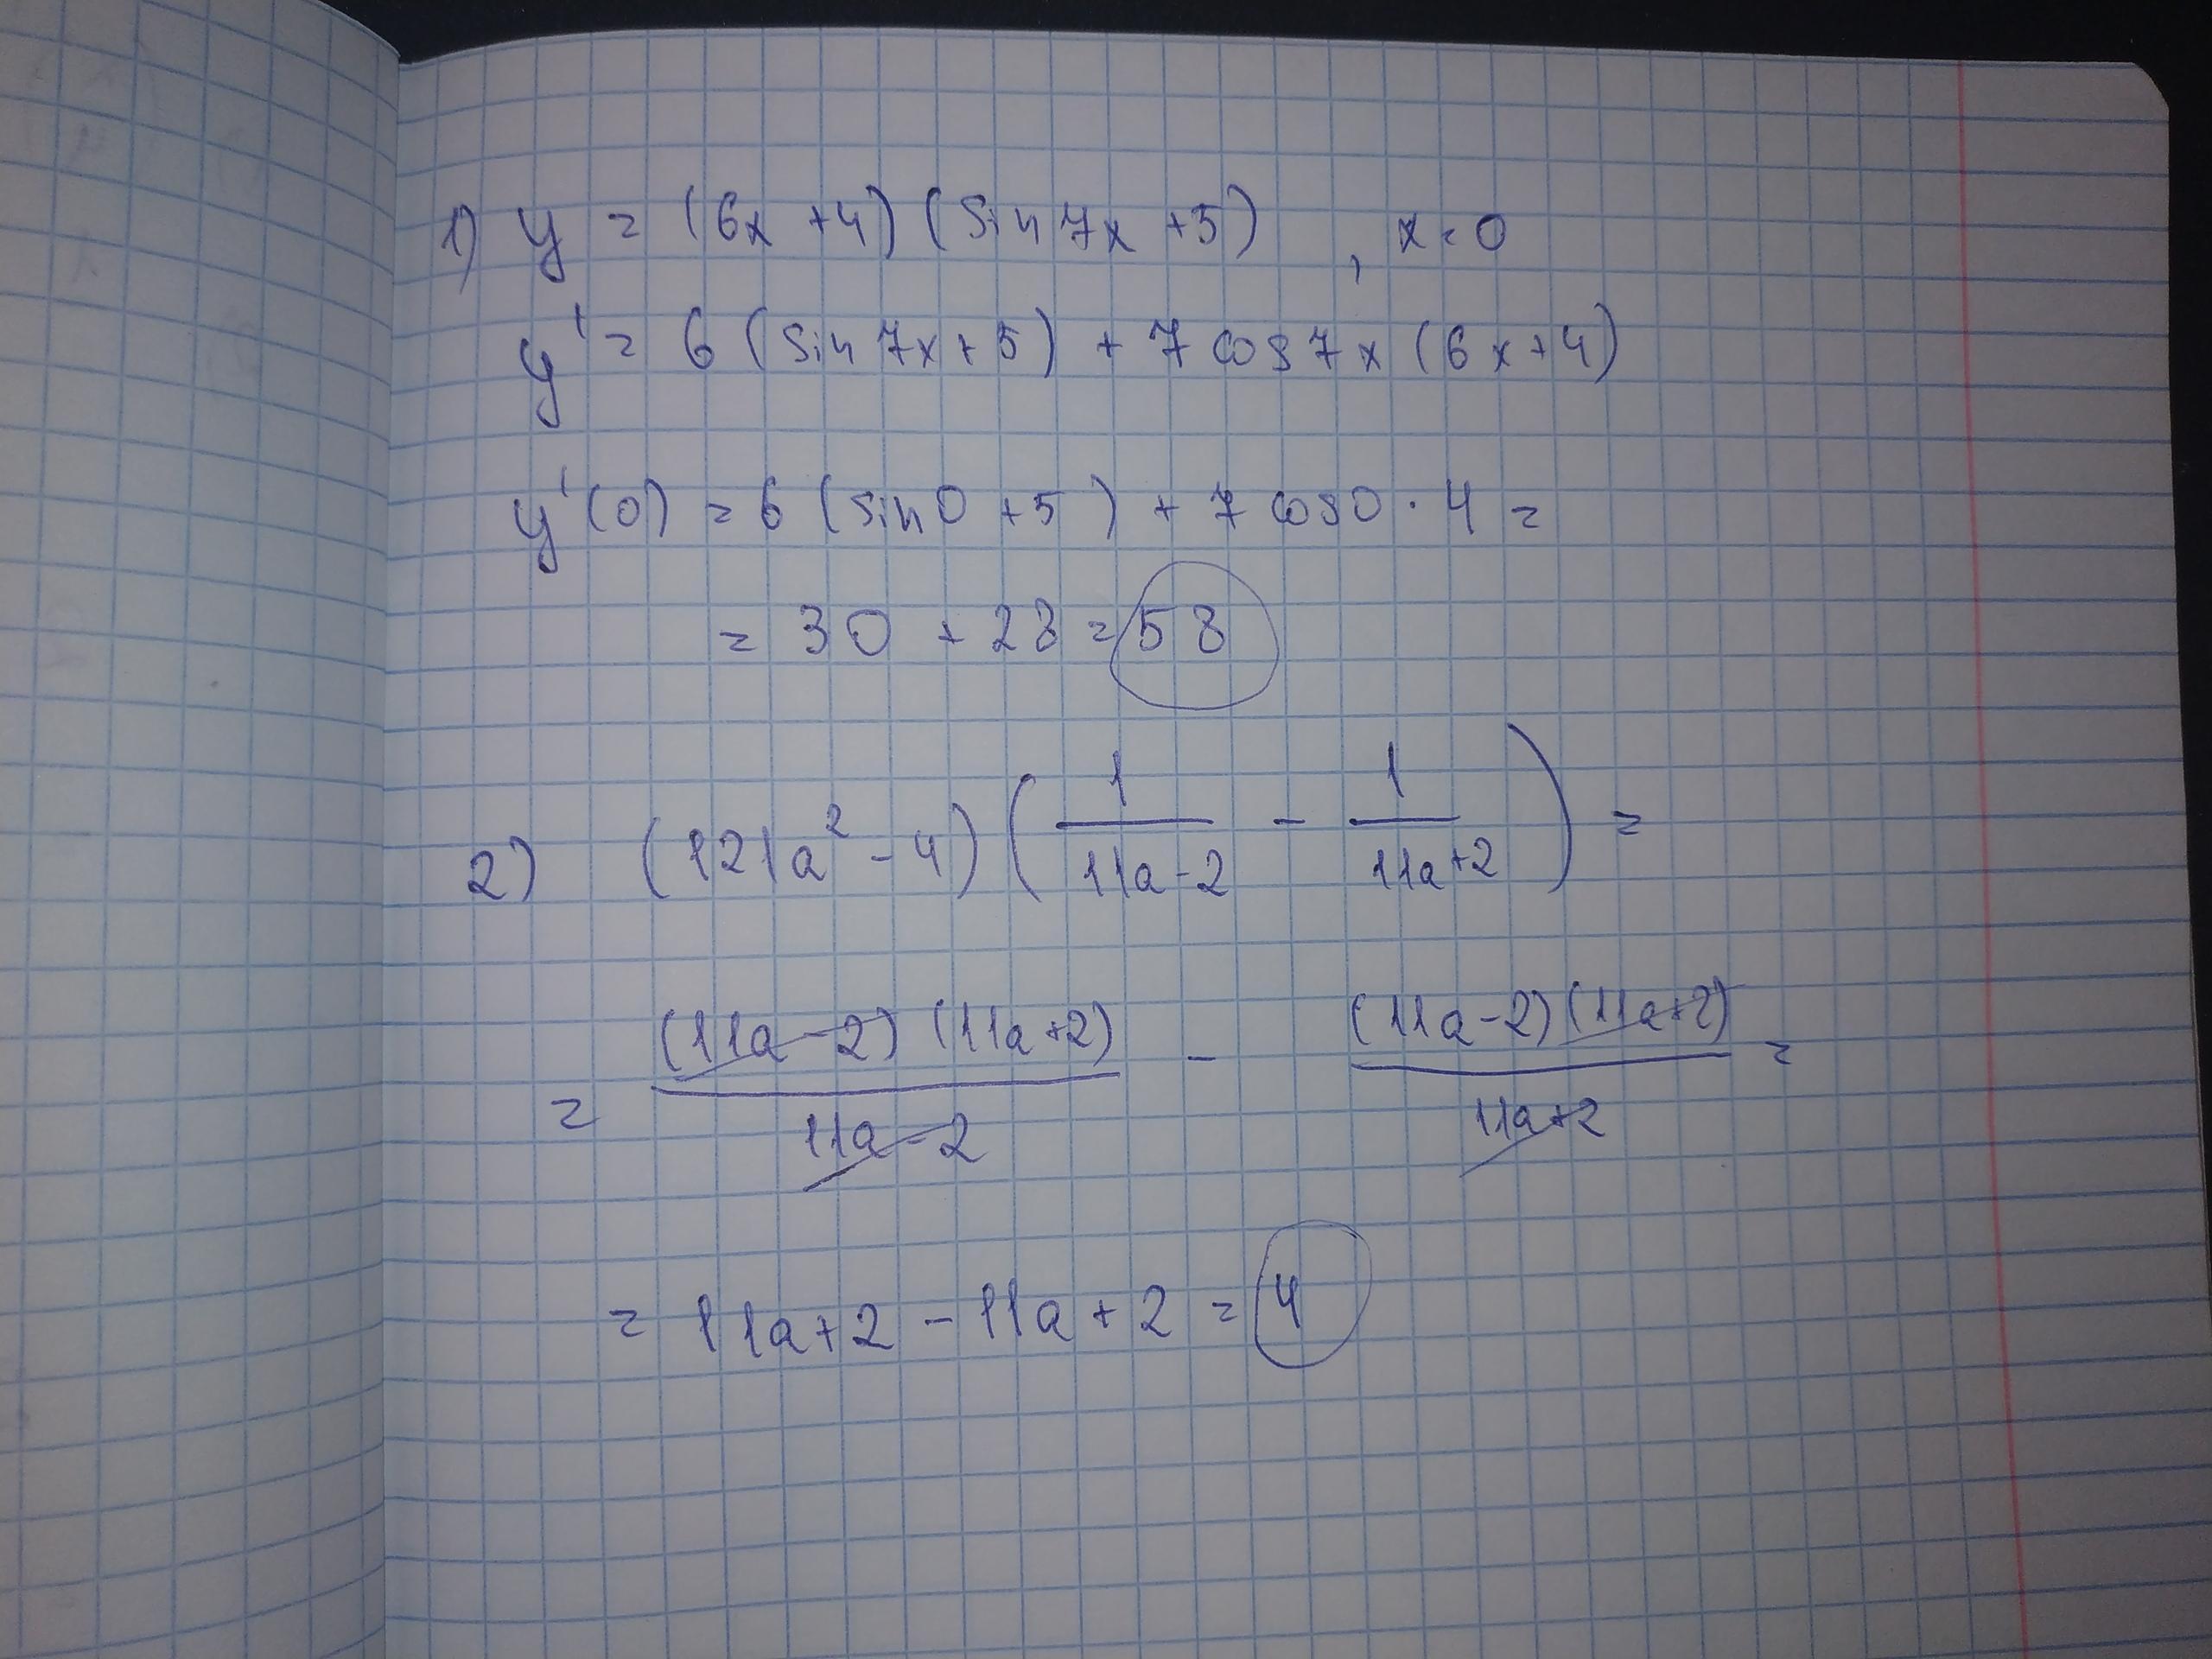 1) y = (6x +4) (sin 7x +5) , x = 0
y' = 6 (sin 7x + 5) + 7 cos 7x (6x+4)
y'(0) = 6 (sin 0 +5) + 7 cos 0 · 4 =
= 30 + 28 = 58
2) (121a² - 4) (1/(11a-2) - 1/(11a+2)) =
= (11a-2)(11a+2)/(11a-2) - (11a-2)(11a+2)/(11a+2) =
= 11a+2 - 11a + 2 = 4